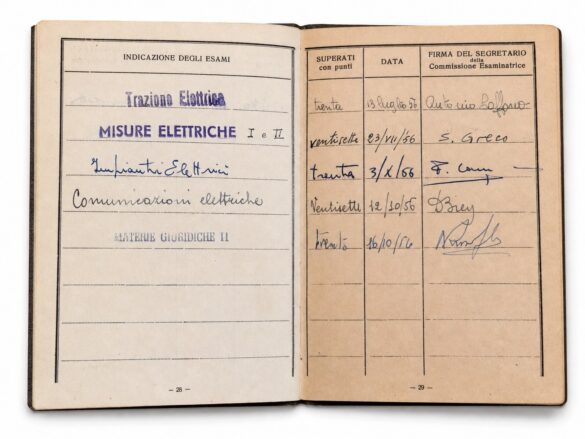 INDICAZIONE DEGLI ESAMI
Trazione Elettrica
MISURE ELETTRICHE I e II
Impianti Elettrici
Comunicazioni elettriche
MATERIE GIURIDICHE II
— 28 —
SUPERATI con punti DATA FIRMA DEL SEGRETARIO della Commissione Esaminatrice
trenta 13 luglio 56 Antonio
ventisette 23/VII/56 S. Greco
trenta 3/X/56 F.
Ventisette 12/10/56
trenta 16/10/56
— 29 —